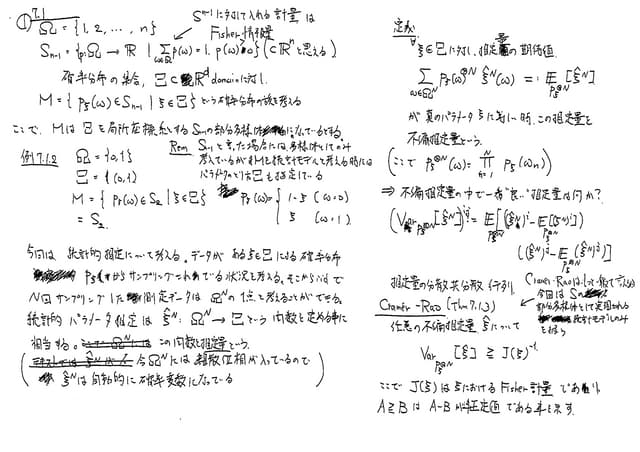 ① 7.1
Ω = {1, 2, ..., n}
S^{n-1} に対して入れる計量は
Fisher 情報量
S_{n-1} = {p: Ω → ℝ | Σ_{ω∈Ω} p(ω) = 1, p(ω) > 0} (⊂ ℝ^n と思える)
確率分布の集合, Ξ ⊂ ℝ^d domain に対し
M = { p_ξ(ω) ∈ S_{n-1} | ξ ∈ Ξ } という確率分布の族を考える
ここで、M は Ξ を局所座標系とする S_{n-1} の部分多様体になっているとする。
例 7.1.2
Ω = {0, 1}
Ξ = (0, 1)
M = { p_ξ(ω) ∈ S_2 | ξ ∈ Ξ }
= S_2
Rem S_{n-1} と言った場合には、多様体としてのみ
考えているが M を統計モデルと考える時には
パラメータのとり方 Ξ も指定している
p_ξ(ω) = { 1-ξ (ω=0)
ξ (ω=1)
今回は 統計的推定について考える。データが ある ξ∈Ξ による確率分布
p_ξ からサンプリングされている状況を考える。そこから
N回サンプリングした測定データは Ω^N の1点と考えることができる。
統計的 パラメータ推定は ξ̂^N: Ω^N → Ξ という 関数を定める事に
相当する。この関数を推定量という。
( 今 Ω^N には離散位相が入っているので
ξ̂^N は自動的に確率変数になっている )
定義
∀ξ∈Ξ に対し、推定量の期待値
Σ_{ω∈Ω^N} p_ξ(ω)^{⊗N} ξ̂^N(ω) =: E_{p_ξ^{⊗N}} [ξ̂^N]
が 真のパラメータ ξ に等しい時、この推定量を
不偏推定量という。
(ここで p_ξ^{⊗N}(ω) = Π_{n=1}^{N} p_ξ(ω_n))
⇒ 不偏推定量の中で一番"良い"推定量は何か?
(Var_{p_ξ^{⊗N}} [ξ̂^N])^{ij} = E_{p_ξ^{⊗N}} [((ξ̂^N)^i - E[(ξ̂^N)^i])
((ξ̂^N)^j - E_{p_ξ^{⊗N}} (ξ̂^N)^j)]
推定量の分散共分散行列
Cramér-Rao (Thm 7.1.3)
Cramér-Rao は
今回は
部分多様体として実現される
統計モデルのみ
任意の不偏推定量 ξ̂ について
Var_{p_ξ^{⊗N}} [ξ̂] ≧ J(ξ)^{-1}
ここで J(ξ) は ξ における Fisher 計量 であり
A ≧ B は A-B が半正定値 である事を示す。